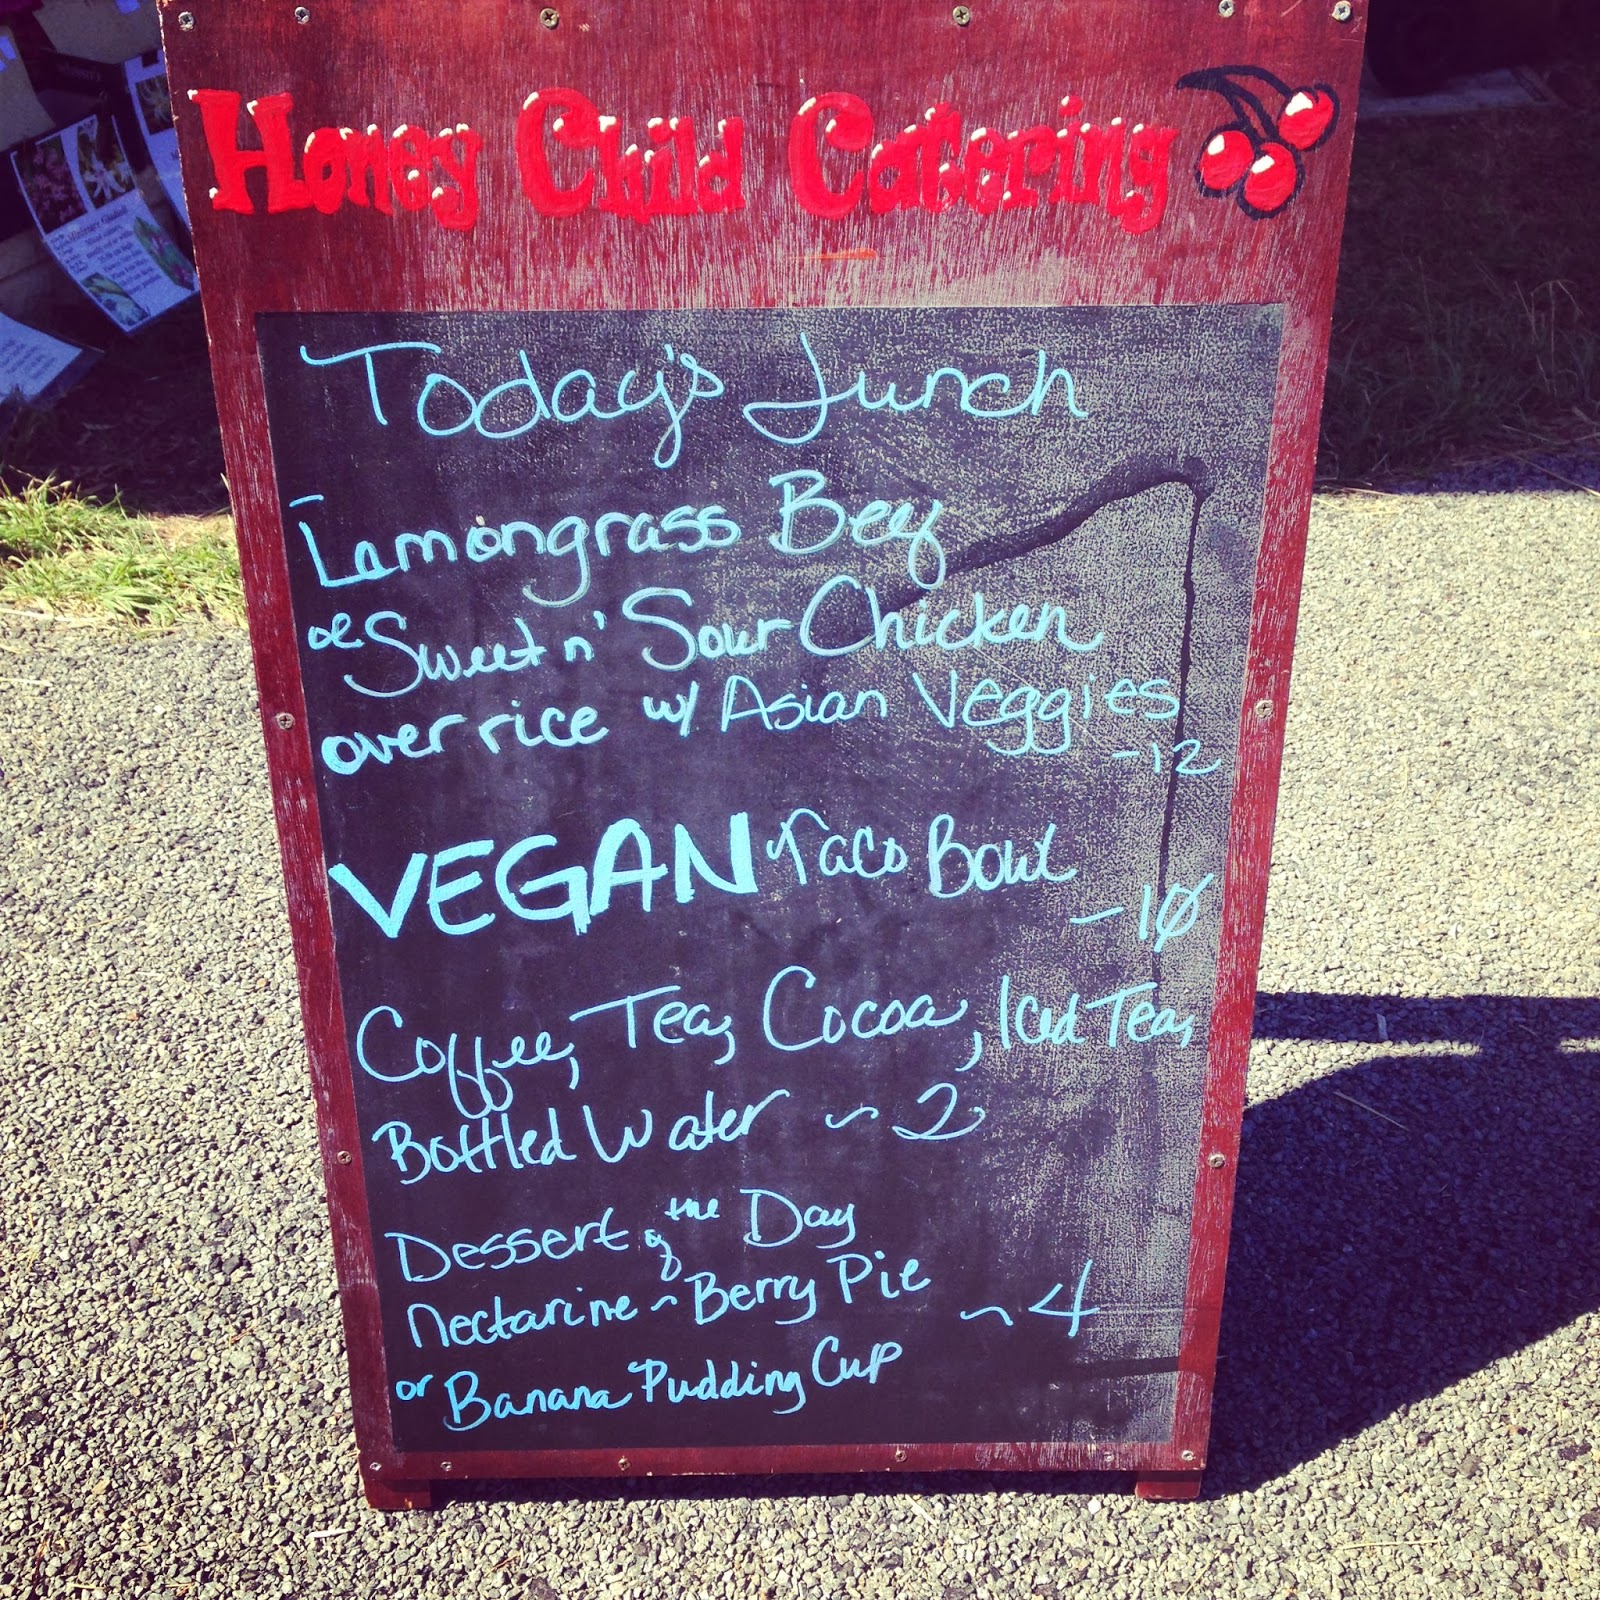 Honey Child Catering
Today's Lunch
Lemongrass Beef
or Sweet n' Sour Chicken
over rice w/ Asian Veggies
-12
VEGAN Taco Bowl
~10
Coffee, Tea, Cocoa, Iced Tea,
Bottled Water ~ 2
Dessert of the Day
Nectarine ~ Berry Pie ~ 4
or Banana Pudding Cup